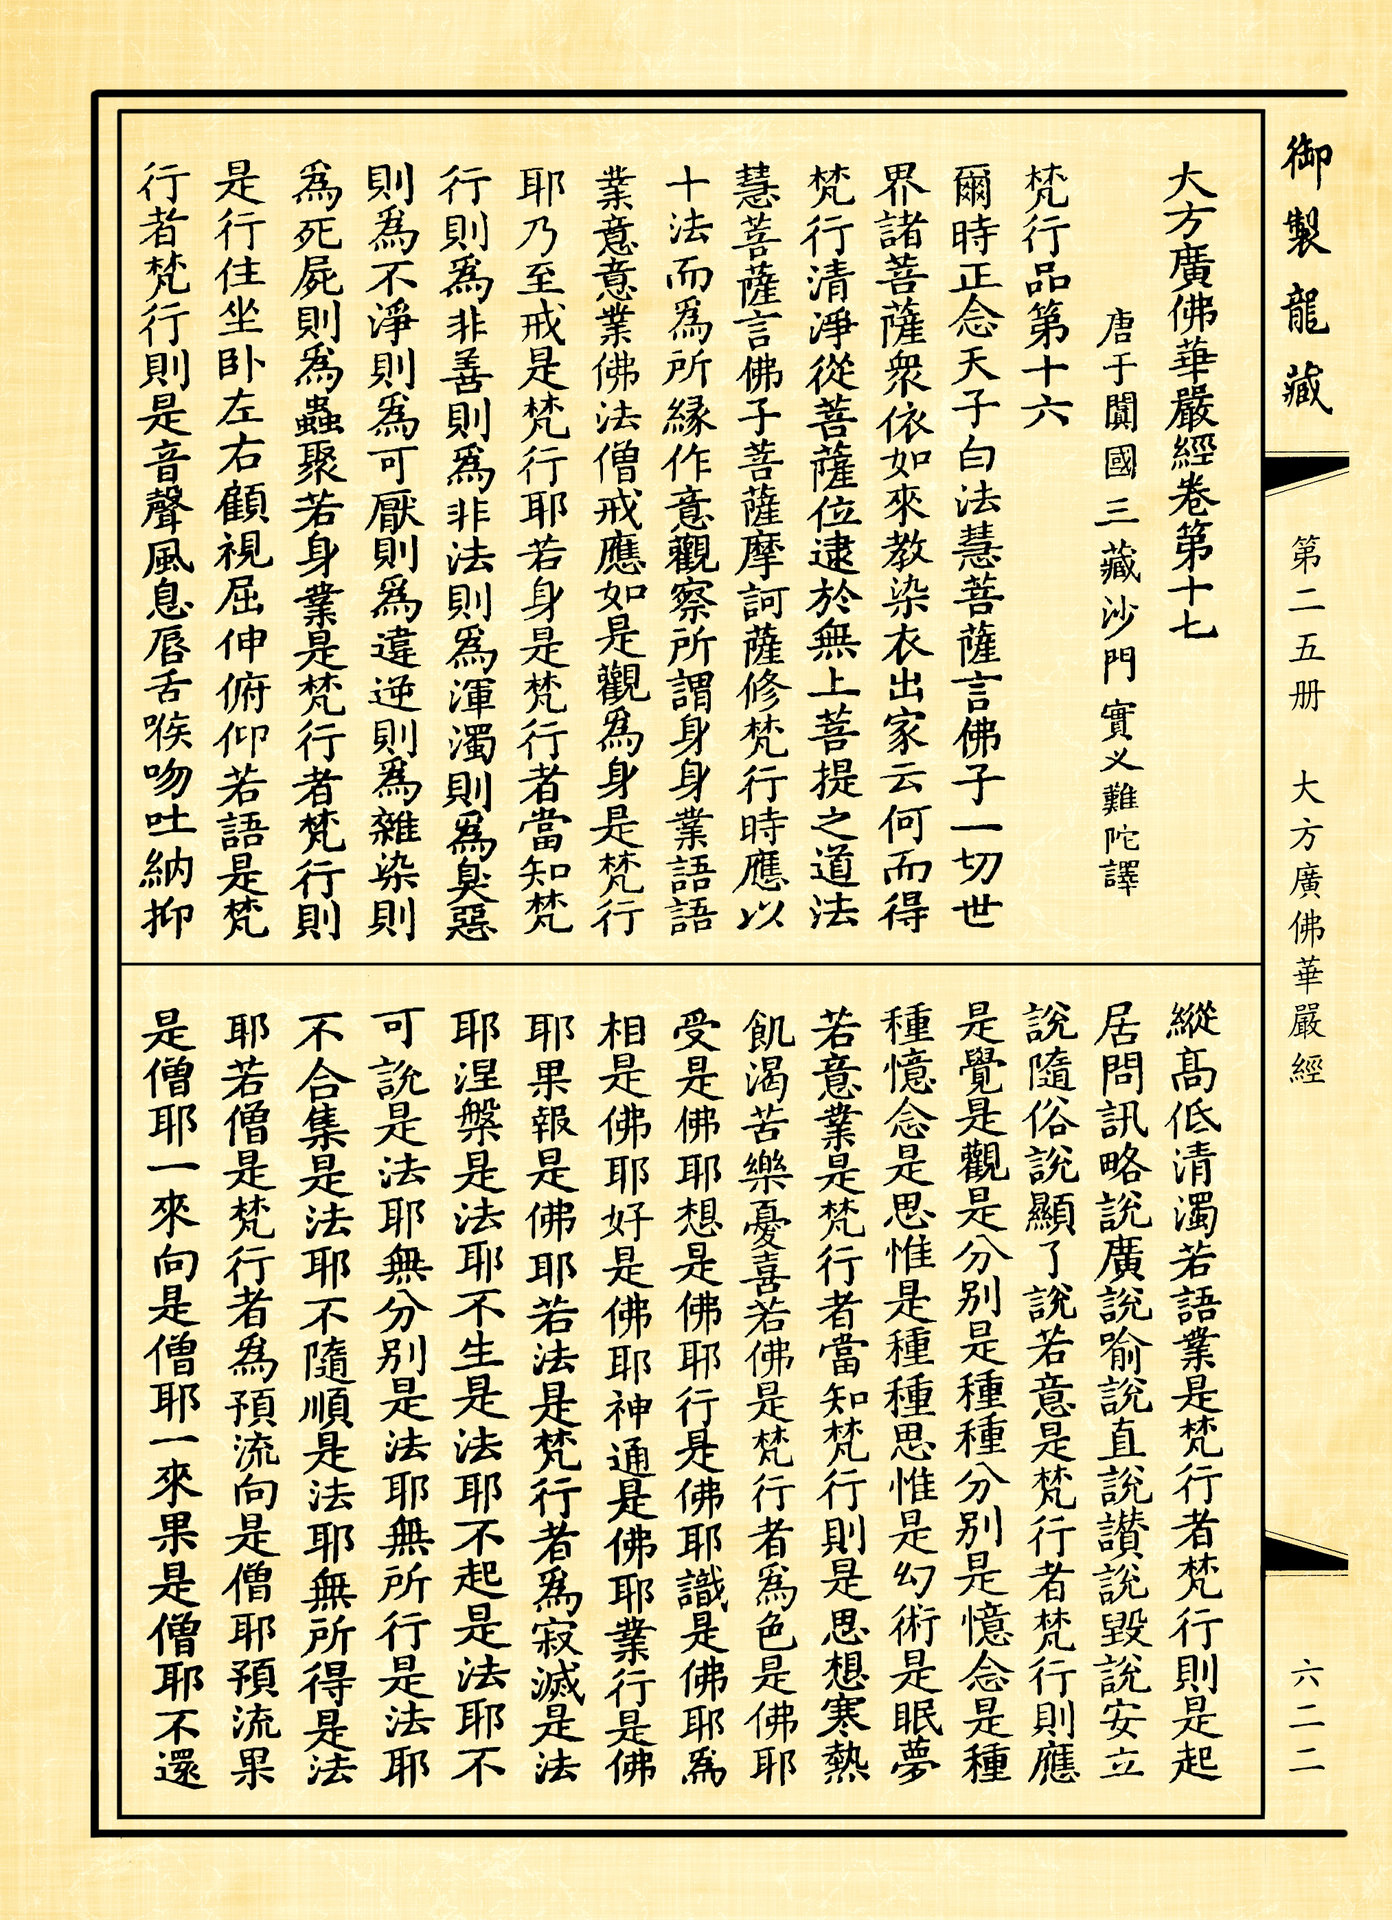 御製龍藏
第二五册 大方廣佛華嚴經
六二二
大方廣佛華嚴經卷第十七
唐于闐國三藏沙門實叉難陀譯
梵行品第十六
爾時正念天子白法慧菩薩言佛子一切世
界諸菩薩衆依如來教染衣出家云何而得
梵行清淨從菩薩位逮於無上菩提之道法
慧菩薩言佛子菩薩摩訶薩修梵行時應以
十法而爲所緣作意觀察所謂身身業語語
業意意業佛法僧戒應如是觀爲身是梵行
耶乃至戒是梵行耶若身是梵行者當知梵
行則爲非善則爲非法則爲渾濁則爲臭惡
則爲不淨則爲可厭則爲違逆則爲雜染則
爲死屍則爲蟲聚若身業是梵行者梵行則
是行住坐卧左右顧視屈伸俯仰若語是梵
行者梵行則是音聲風息脣舌喉吻吐納抑
縱高低清濁若語業是梵行者梵行則是起
居問訊略說廣說喻說直說讚說毀說安立
說隨俗說顯了說若意是梵行者梵行則應
是覺是觀是分別是種種分別是憶念是種
種憶念是思惟是種種思惟是幻術是眠夢
若意業是梵行者當知梵行則是思想寒熱
飢渴苦樂憂喜若佛是梵行者爲色是佛耶
受是佛耶想是佛耶行是佛耶識是佛耶爲
相是佛耶好是佛耶神通是佛耶業行是佛
耶果報是佛耶若法是梵行者爲寂滅是法
耶涅槃是法耶不生是法耶不起是法耶不
可說是法耶無分別是法耶無所行是法耶
不合集是法耶不隨順是法耶無所得是法
耶若僧是梵行者爲預流向是僧耶預流果
是僧耶一來向是僧耶一來果是僧耶不還